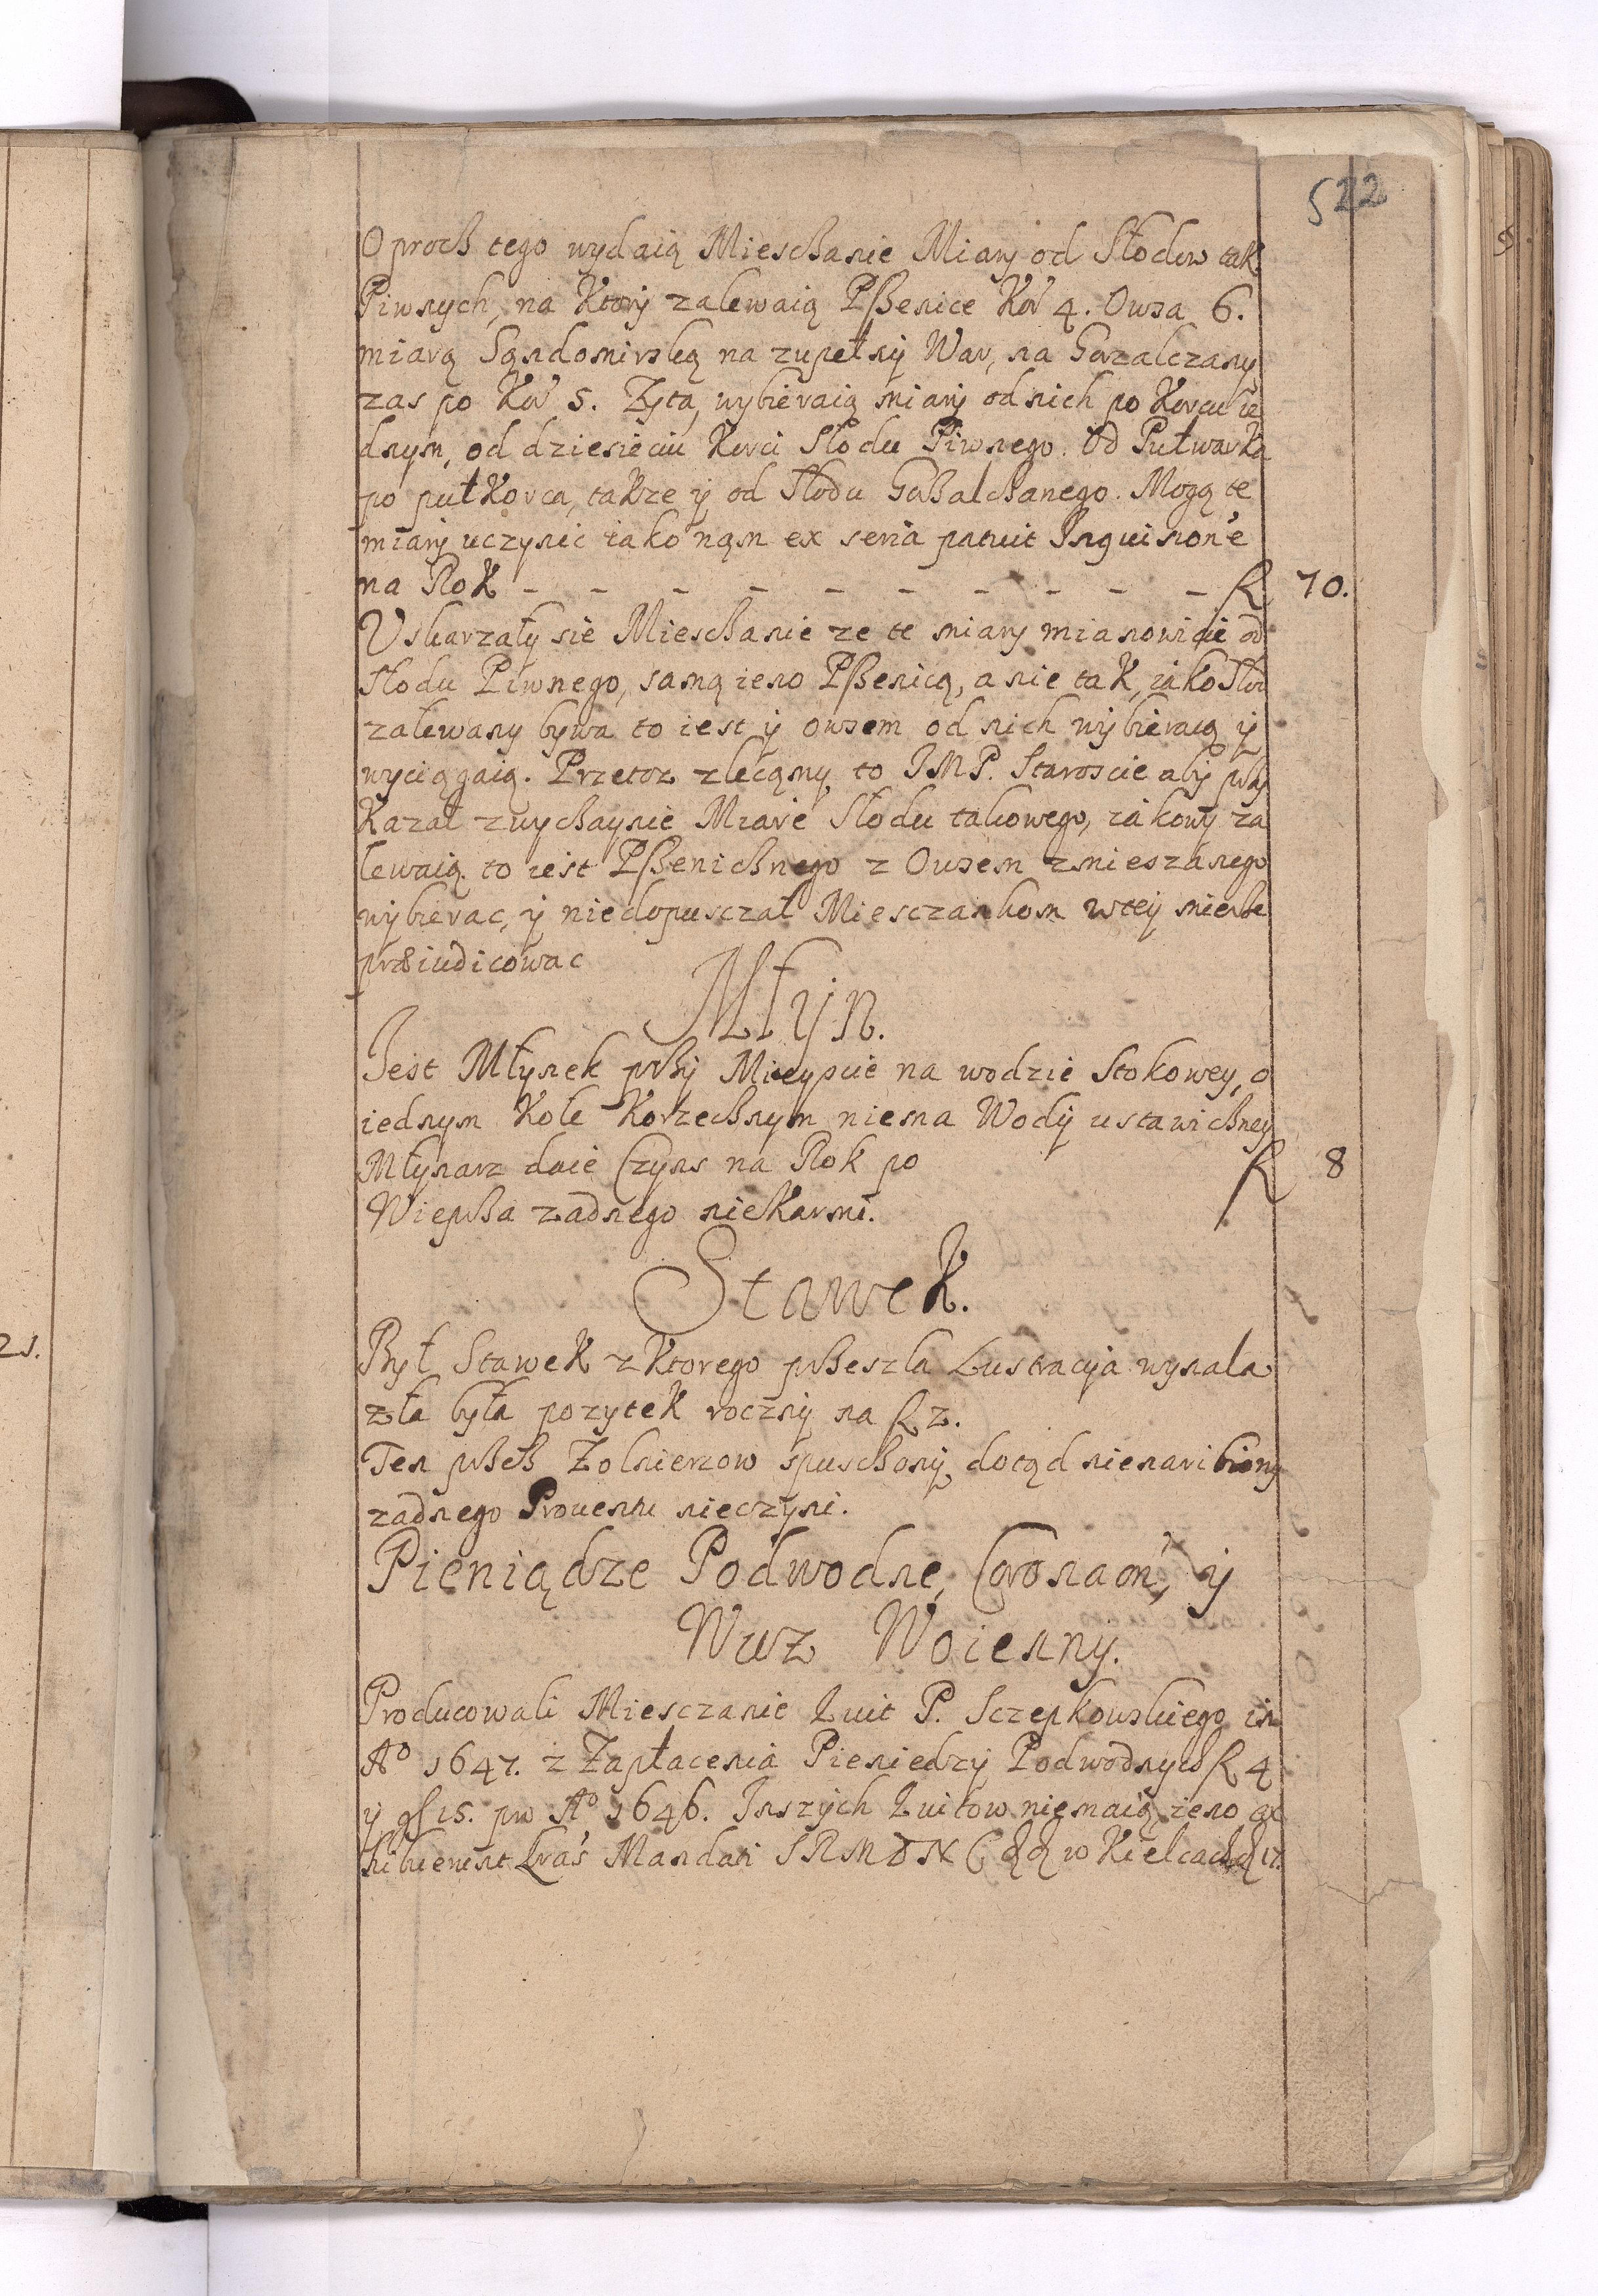 522
Oproch tego wydaią Mieschanie Miary od Słodow tak
Piwnych, na Ktory zalewaią Pßenice Kor 4. Owsa 6.
miarą Sądomirską na zupełny War, na Gorzalczany
zas po Kor 5. Zyta, wybieraią miary od nich po Korcu ie
dnym, od dziesieciu Korci Słodu Piwnego. Od Pułwarka
po puł Korca, takze y od Słodu Gorzalchanego. Mogą te
miary uczynic iako nąm ex seria patuit Inquisione
na Rok - - - - - - - - - - R 70.
Uskarzały sie Mieschanie ze te miary mianowicie od
Słodu Piwnego, samą ieno Pßenicą, a nie tak, iako Słod
zalewany bywa to iest y owsem od nich wybieraią y
wyciągaią. Przetoz zlecamy to IMP. Staroscie aby przy
Kazał zwychaynie Miare Słodu takowego, iakowy za
lewaią to iest Pßenichnego z Owsem zmieszanego
wybierac, y niedopusczał Miesczankom wtey mierze
præiudicowac
Młyn.
Jest Młynek przy Miescie na wodzie Stokowey, o
iednym Kole Korzechnym niema Wody ustawichney
Młynarz daie Czyns na Rok po R 8
Wieprza zadnego nie Karmi.
Stawek.
Był Stawek z Ktorego przeszla Lustracyja wynala
zła była pozytek roczny na R 2.
Ten przez Zolnierzow spuschony, dotąd nienaribiony
zadnego Prouentu nieczyni.
Pieniądze Podwodne, Coronaon, y
Wuz Woienny.
Producowali Miesczanie Quit P. Sczepkowskiego in
Aº 1647. z Zapłacenia Pieniedzy Podwodnych R 4
y gl 15. pro Aº 1646. Inszych Quitow niemaią, ieno ex
hibuerunt Lras Mandati SRMDN w Kielcach
21.